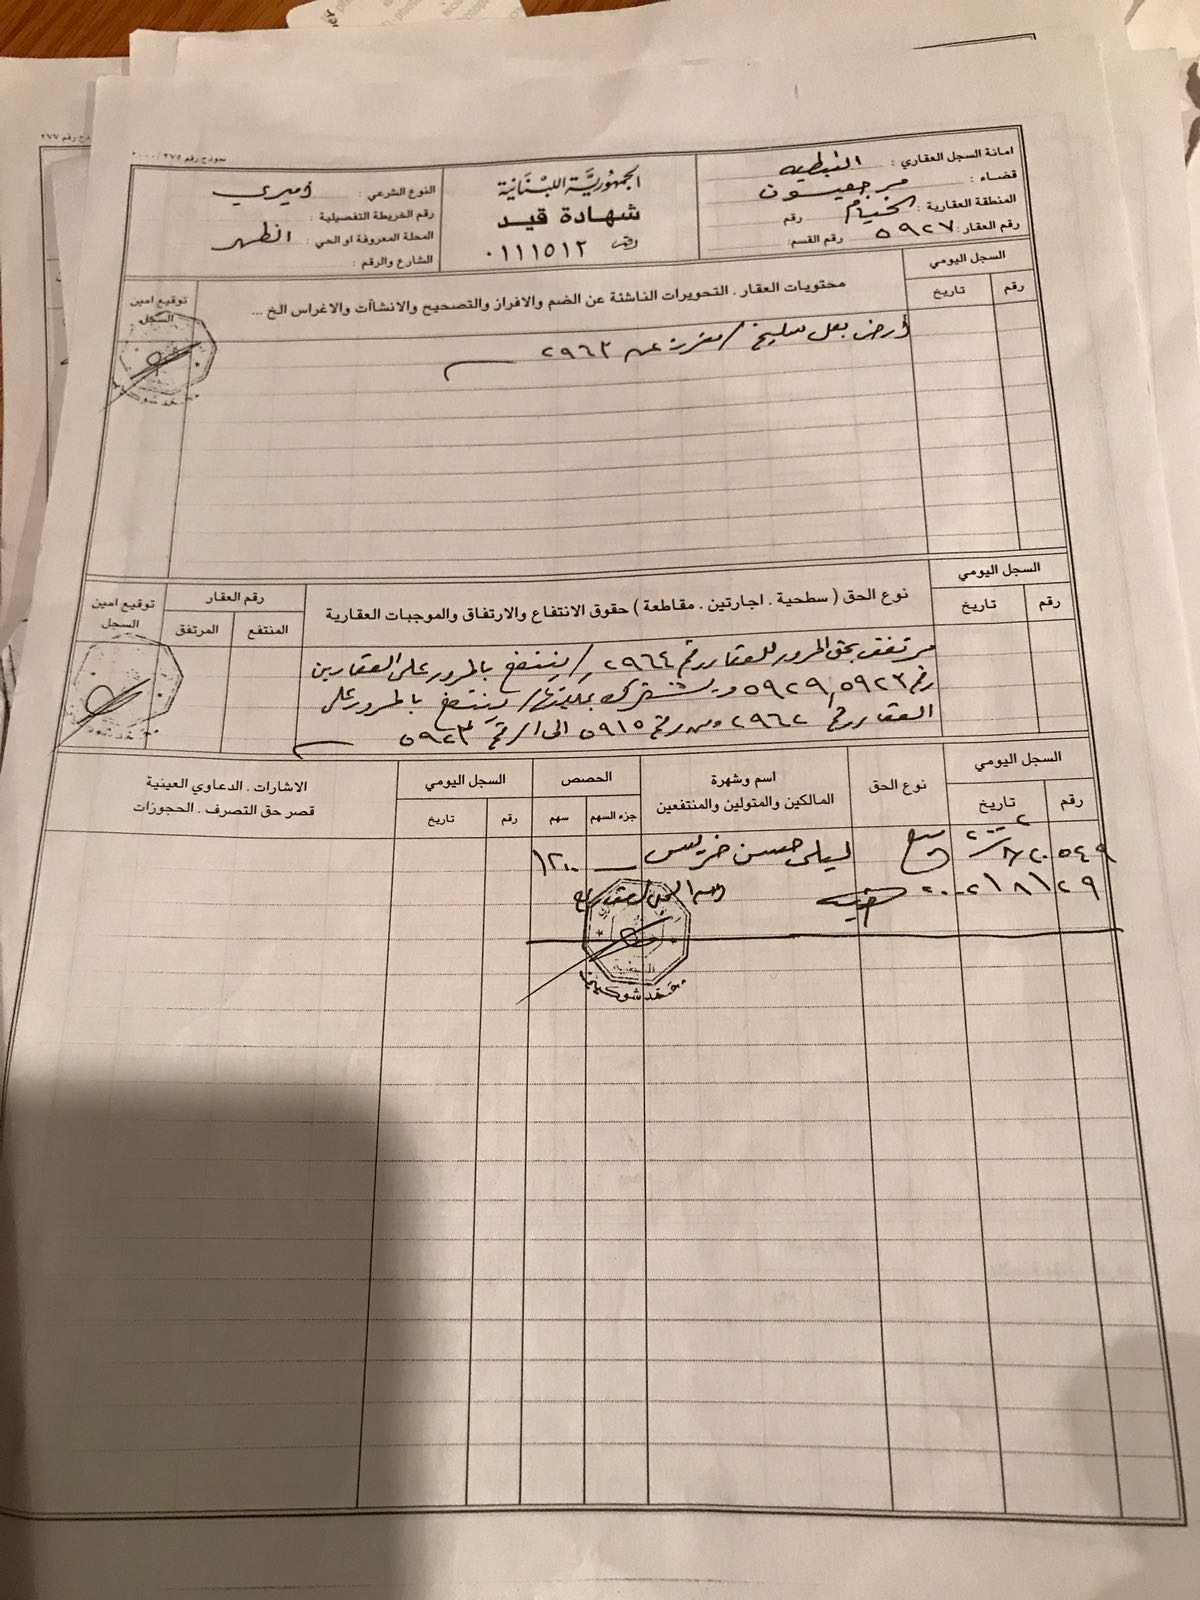 نموذج رقم ٢٧٥ / ٢٠٠٠
امانة السجل العقاري : النبطيه
قضاء : مرجعيون
المنطقة العقارية : الخيام رقم
رقم العقار: ٥٩٢٧ رقم القسم:
الجمهورية اللبنانية
شهادة قيد
رقم ٠١١١٥١٢
النوع الشرعي : أميري
رقم الخريطة التفصيلية :
المحلة المعروفة او الحي : الظهر
الشارع والرقم :
السجل اليومي
رقم تاريخ
محتويات العقار . التحويرات الناشئة عن الضم والافراز والتصحيح والانشاآت والاغراس الخ ...
توقيع امين السجل
أرض بعل سليخ / مفرزة عن ٢٩٦٣
السجل اليومي
رقم تاريخ
نوع الحق ( سطحية . اجارتين . مقاطعة ) حقوق الانتفاع والارتفاق والموجبات العقارية
رقم العقار
المنتفع المرتفق
توقيع امين السجل
مرتفق بحق المرور للعقار رقم ٢٩٦٤ / ينتفع بالمرور على العقارين
رقم ٥٩٢٣ , ٥٩٢٩ ويشترك بملكيتها / ينتفع بالمرور على
العقار رقم ٢٩٦٢ ومن رقم ٥٩١٥ الى الرقم ٥٩٢٣
السجل اليومي
رقم تاريخ
نوع الحق
اسم وشهرة
المالكين والمتولين والمنتفعين
الحصص
جزء السهم سهم
السجل اليومي
رقم تاريخ
الاشارات . الدعاوي العينية
قصر حق التصرف . الحجوزات
٥٤٩ بيع ليلى حسن خريس ١٢٠٠
٢٠٠٢/٨/٢٩